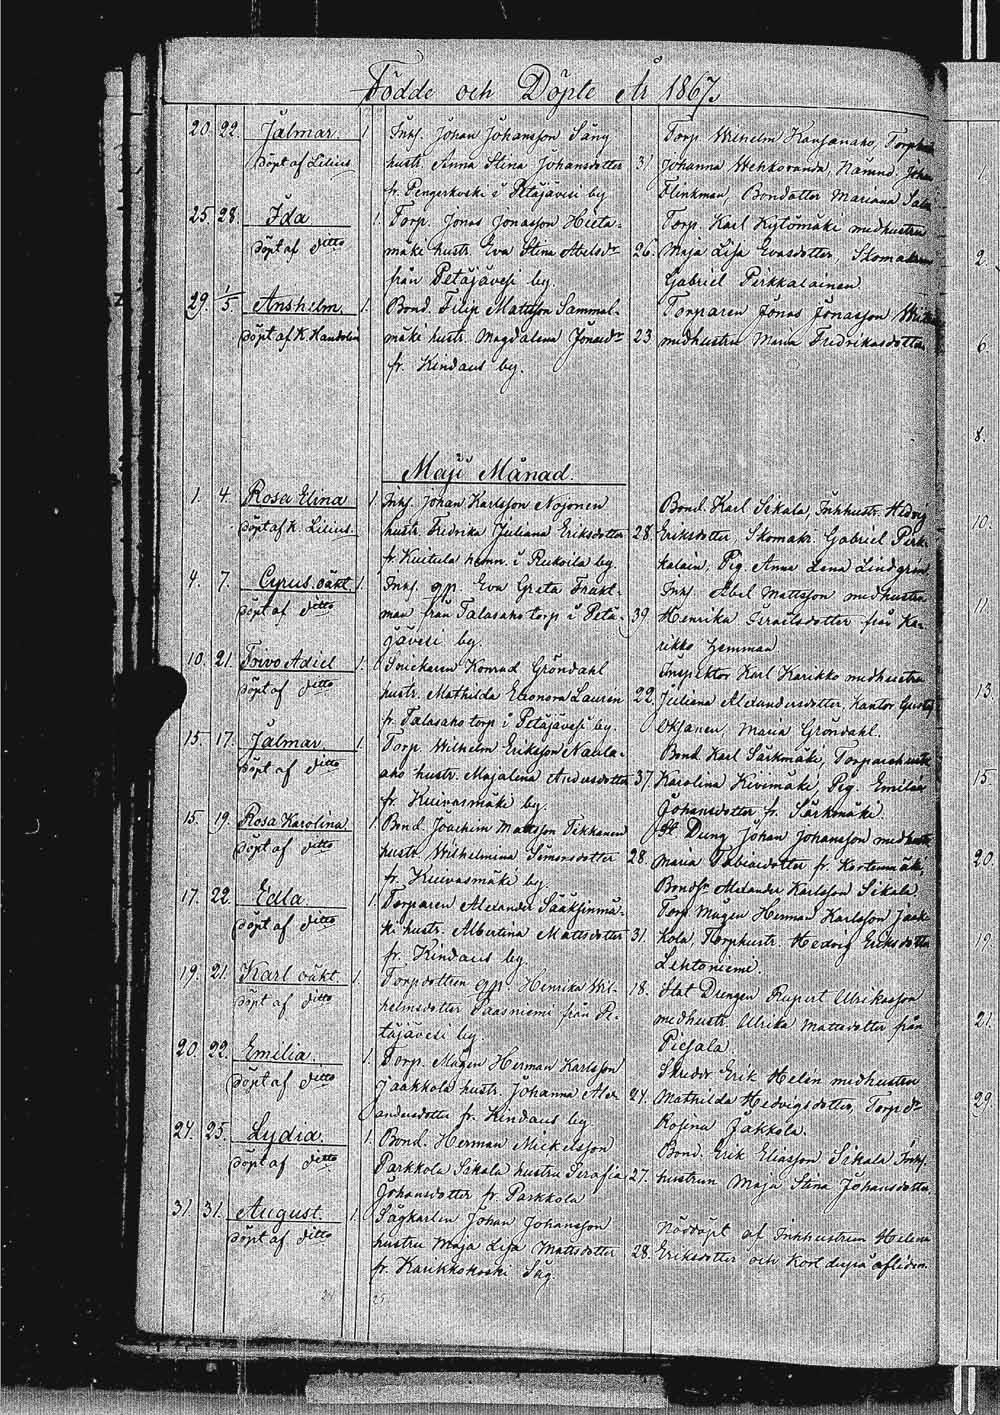 Födde och Döpte År 1867.
20. 22. Jalmar. 1 Inhs. Johan Johansson Säng Torp. Wilhelm Kanganaho, Torphus
Döpt af Lilius hustr. Anna Stina Johansdotter 31 Johanna Wehkoranda, Nämnd. Johan
fr. Pengerkoski i Petäjävesi by Flinkman, Bondotter Mariana Salm
25. 28. Ida 1. Torp. Jonas Jonasson Hieta- Torp. Karl Kylömäki medhustru
Döpt af ditto mäki hustr. Eva Stina Abelsdr 26. Maja Lisa Evasdotter, Skomakaren
från Petäjävesi by. Gabriel Perkkalainen.
29. 1/5. Anshelm. 1. Bond. Filip Mattsson Sammal- Torparen Jonas Jonasson
Döpt af K. Handolin mäki hustr. Magdalena Jonasdr 23 medhustru Maria Fredrikasdotter
fr. Kindaus by.
Maji Månad.
1. 4. Rosa Elina 1. Inhs. Johan Karlsson Nojonen Bond. Karl Sikala, Inhhustr. Hedvig
Döpt af K. Lilius hustr. Fredrika Juliana Eriksdotter 28. Eriksdotter, Skomak. Gabriel Perk-
fr. Kuitula hemn. i Ruokoila by. kalain, Pig. Anna Lena Lindgren
4. 7. Cyrus. oäkt. 1 Inhs. qp. Eva Greta Frakt- Inhs. Abel Mattsson medhustru
Döpt af ditto man från Talasaho torp i Petä- 39 Henrika Israelsdotter från Ka-
jävesi by. rikko hemman
10. 21. Toivo Adiel 1. Snickaren Konrad Gröndahl Inspektor Karl Karikko medhustru
Döpt af ditto hustr. Mathilda Eleonora Lauren 22. Juliana Alexandersdotter, Kantor Gustaf
fr. Talasaho torp i Petäjävesi by. Oksanen, Maria Gröndahl.
15. 17. Jalmar. 1. Torp. Wilhelm Eriksson Naula- Bond. Karl Särkmäki, Torparehustr
Döpt af ditto aho hustr. Majalena Andersdotter 37. Karolina Kivimäki, Pig. Emilia
fr. Kuivasmäki by Johansdotter fr. Särkmäki.
15. 19. Rosa Karolina 1. Bnd. Joachim Mattsson Tikkanen St Dräng Johan Johansson medhustr
Döpt af ditto hustr. Wilhelmina Simonsdotter 28. Maria Tobiasdotter fr. Kortenmäki,
fr. Kuivasmäki by. Bondsn Alexander Karlsson Sikala
17. 22. Edla. 1. Torparen Alexander Sääksinmä- Torp Mågen Herman Karlsson Jaak-
Döpt af ditto ki hustr. Albertina Mattsdotter 31. kola, Torphustr. Hedvig Eriksdotter
fr. Kindaus by. Lehtoniemi.
19. 21. Karl oäkt. 1. Torpdottren qp Henrika Wil- 18. Stat Drengen Rupert Ulrikasson
Döpt af ditto helmsdotter Paasniemi från Pe- medhustr. Ulrika Mattsdotter från
täjävesi by. Piesala.
20. 22. Emilia. 1. Torp. Mågen Herman Karlsson Skrädr. Erik Helén medhustru
Döpt af ditto Jaakkola hustr. Johanna Alex- 24. Mathilda Hedvigsdotter, Torpdr
andersdotter fr. Kindaus by Rosina Jakkola.
24. 25. Lydia. 1. Bond. Herman Mickelsson Bond. Erik Eliasson Sikala Inhs.
Döpt af ditto Parkkola Sikala hustru Serafia 27. hustrun Maja Stina Johansdotter.
Johansdotter fr. Parkkola
31 31. August. 1. Sågkarlen Johan Johansson Nöddöpt af Inhhustrun Helena
Döpt af ditto hustru Maja Lisa Mattsdotter 28. Eriksdotter och kort derpå afliden.
fr. Kaukkokoski Såg
25
1.
2.
6.
8.
10.
11.
13.
15.
20.
19.
21.
29.